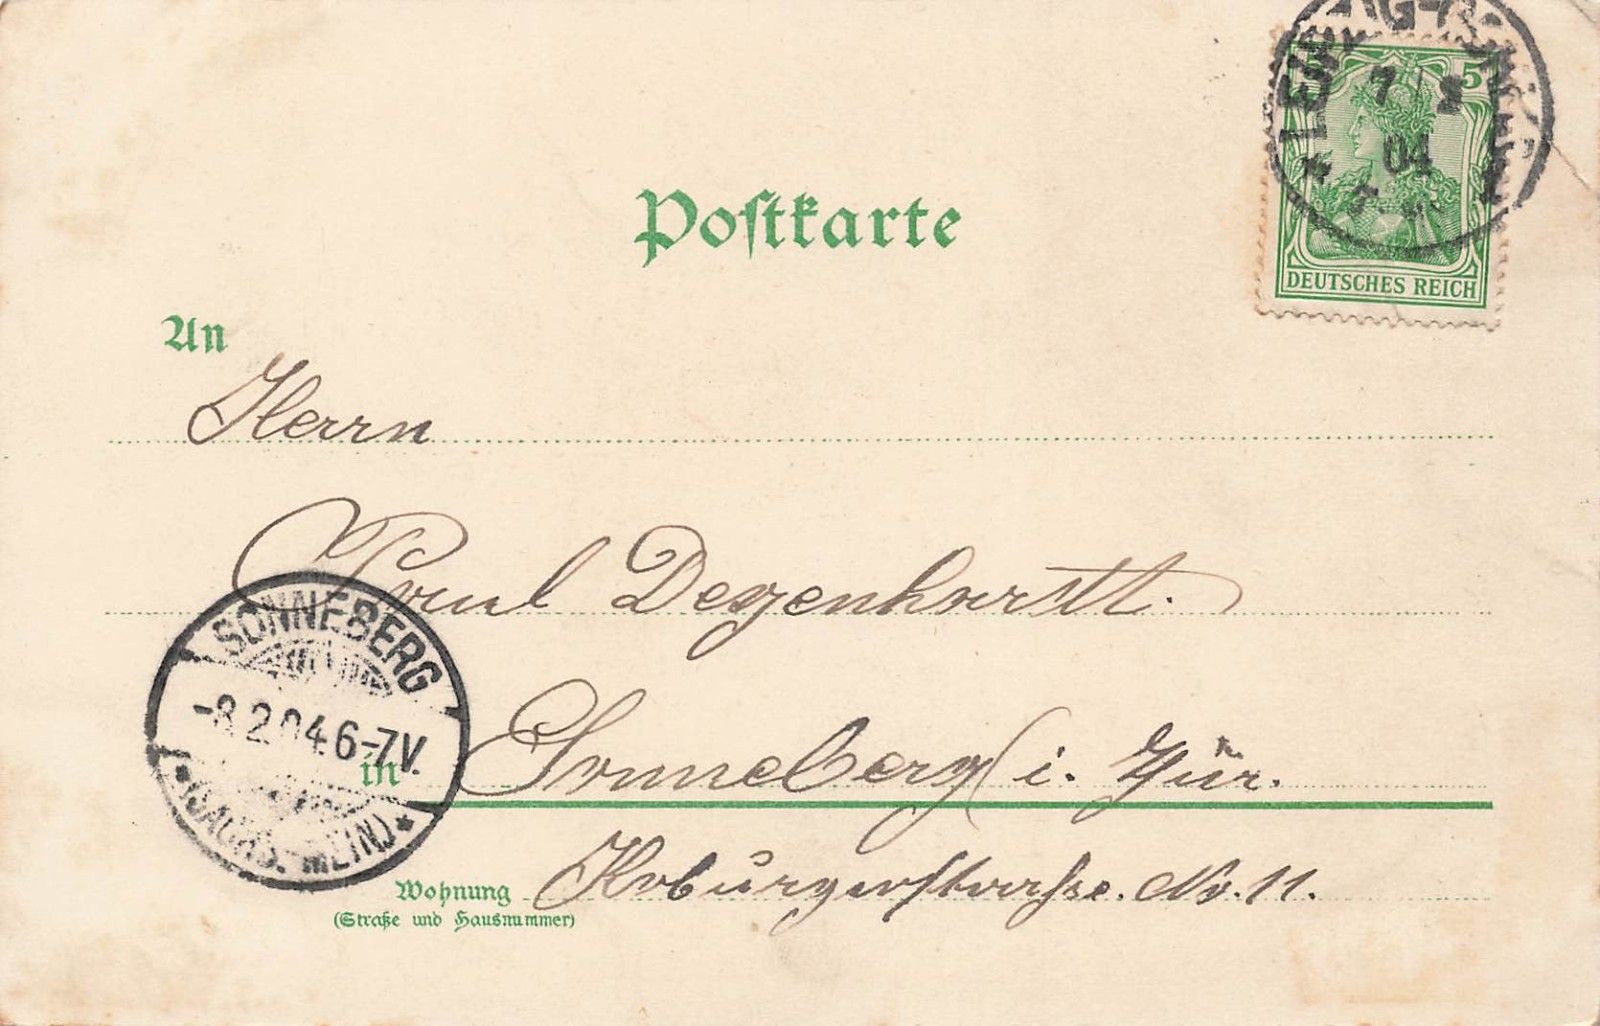 5 5
7/2
04
DEUTSCHES REICH
Postkarte
An
Herrn
Paul Degenhardt.
SONNEBERG
-8.2.04.6-7V.
*(SACHS.-MEIN.)*
in Sonneberg i. Tür.
Wohnung Koburgerstrasse. No. 11.
(Straße und Hausnummer)